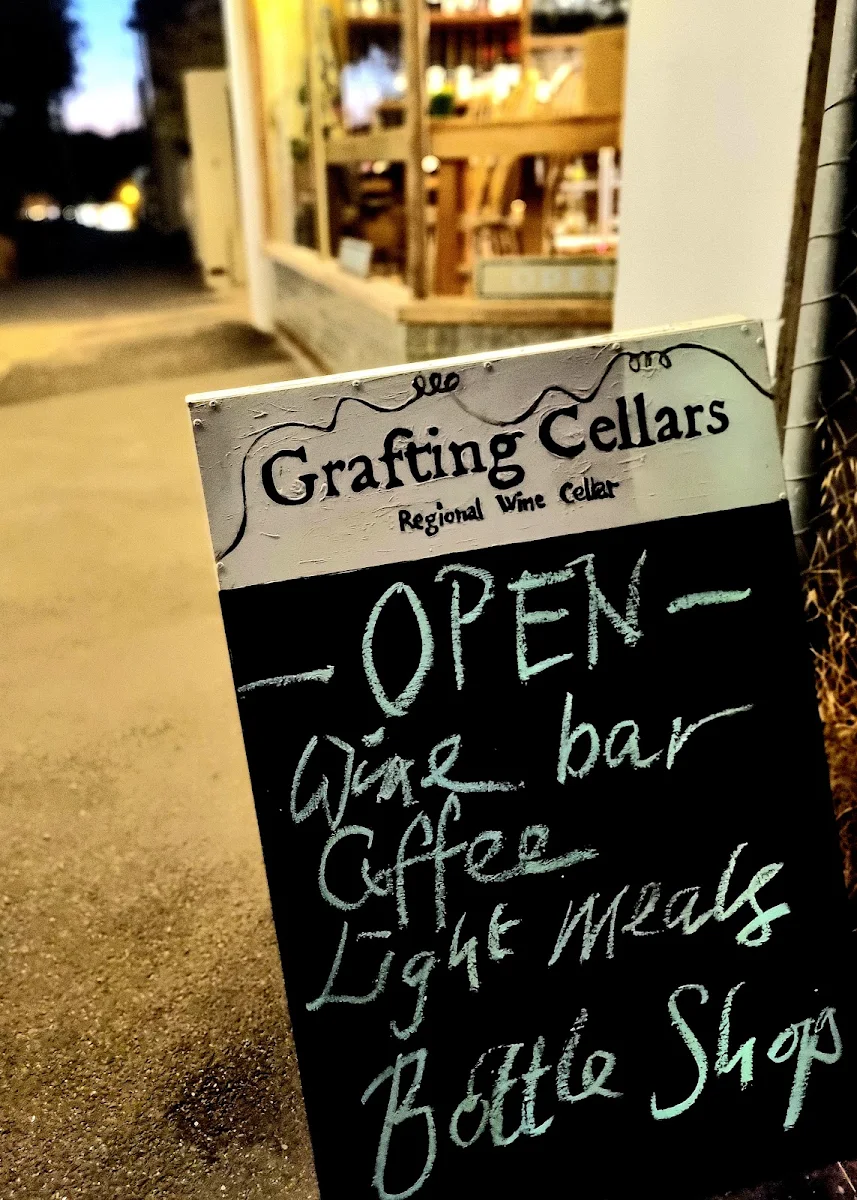 Grafting Cellars
Regional Wine Cellar
- OPEN -
Wine bar
Coffee
Light Meals
Bottle Shop